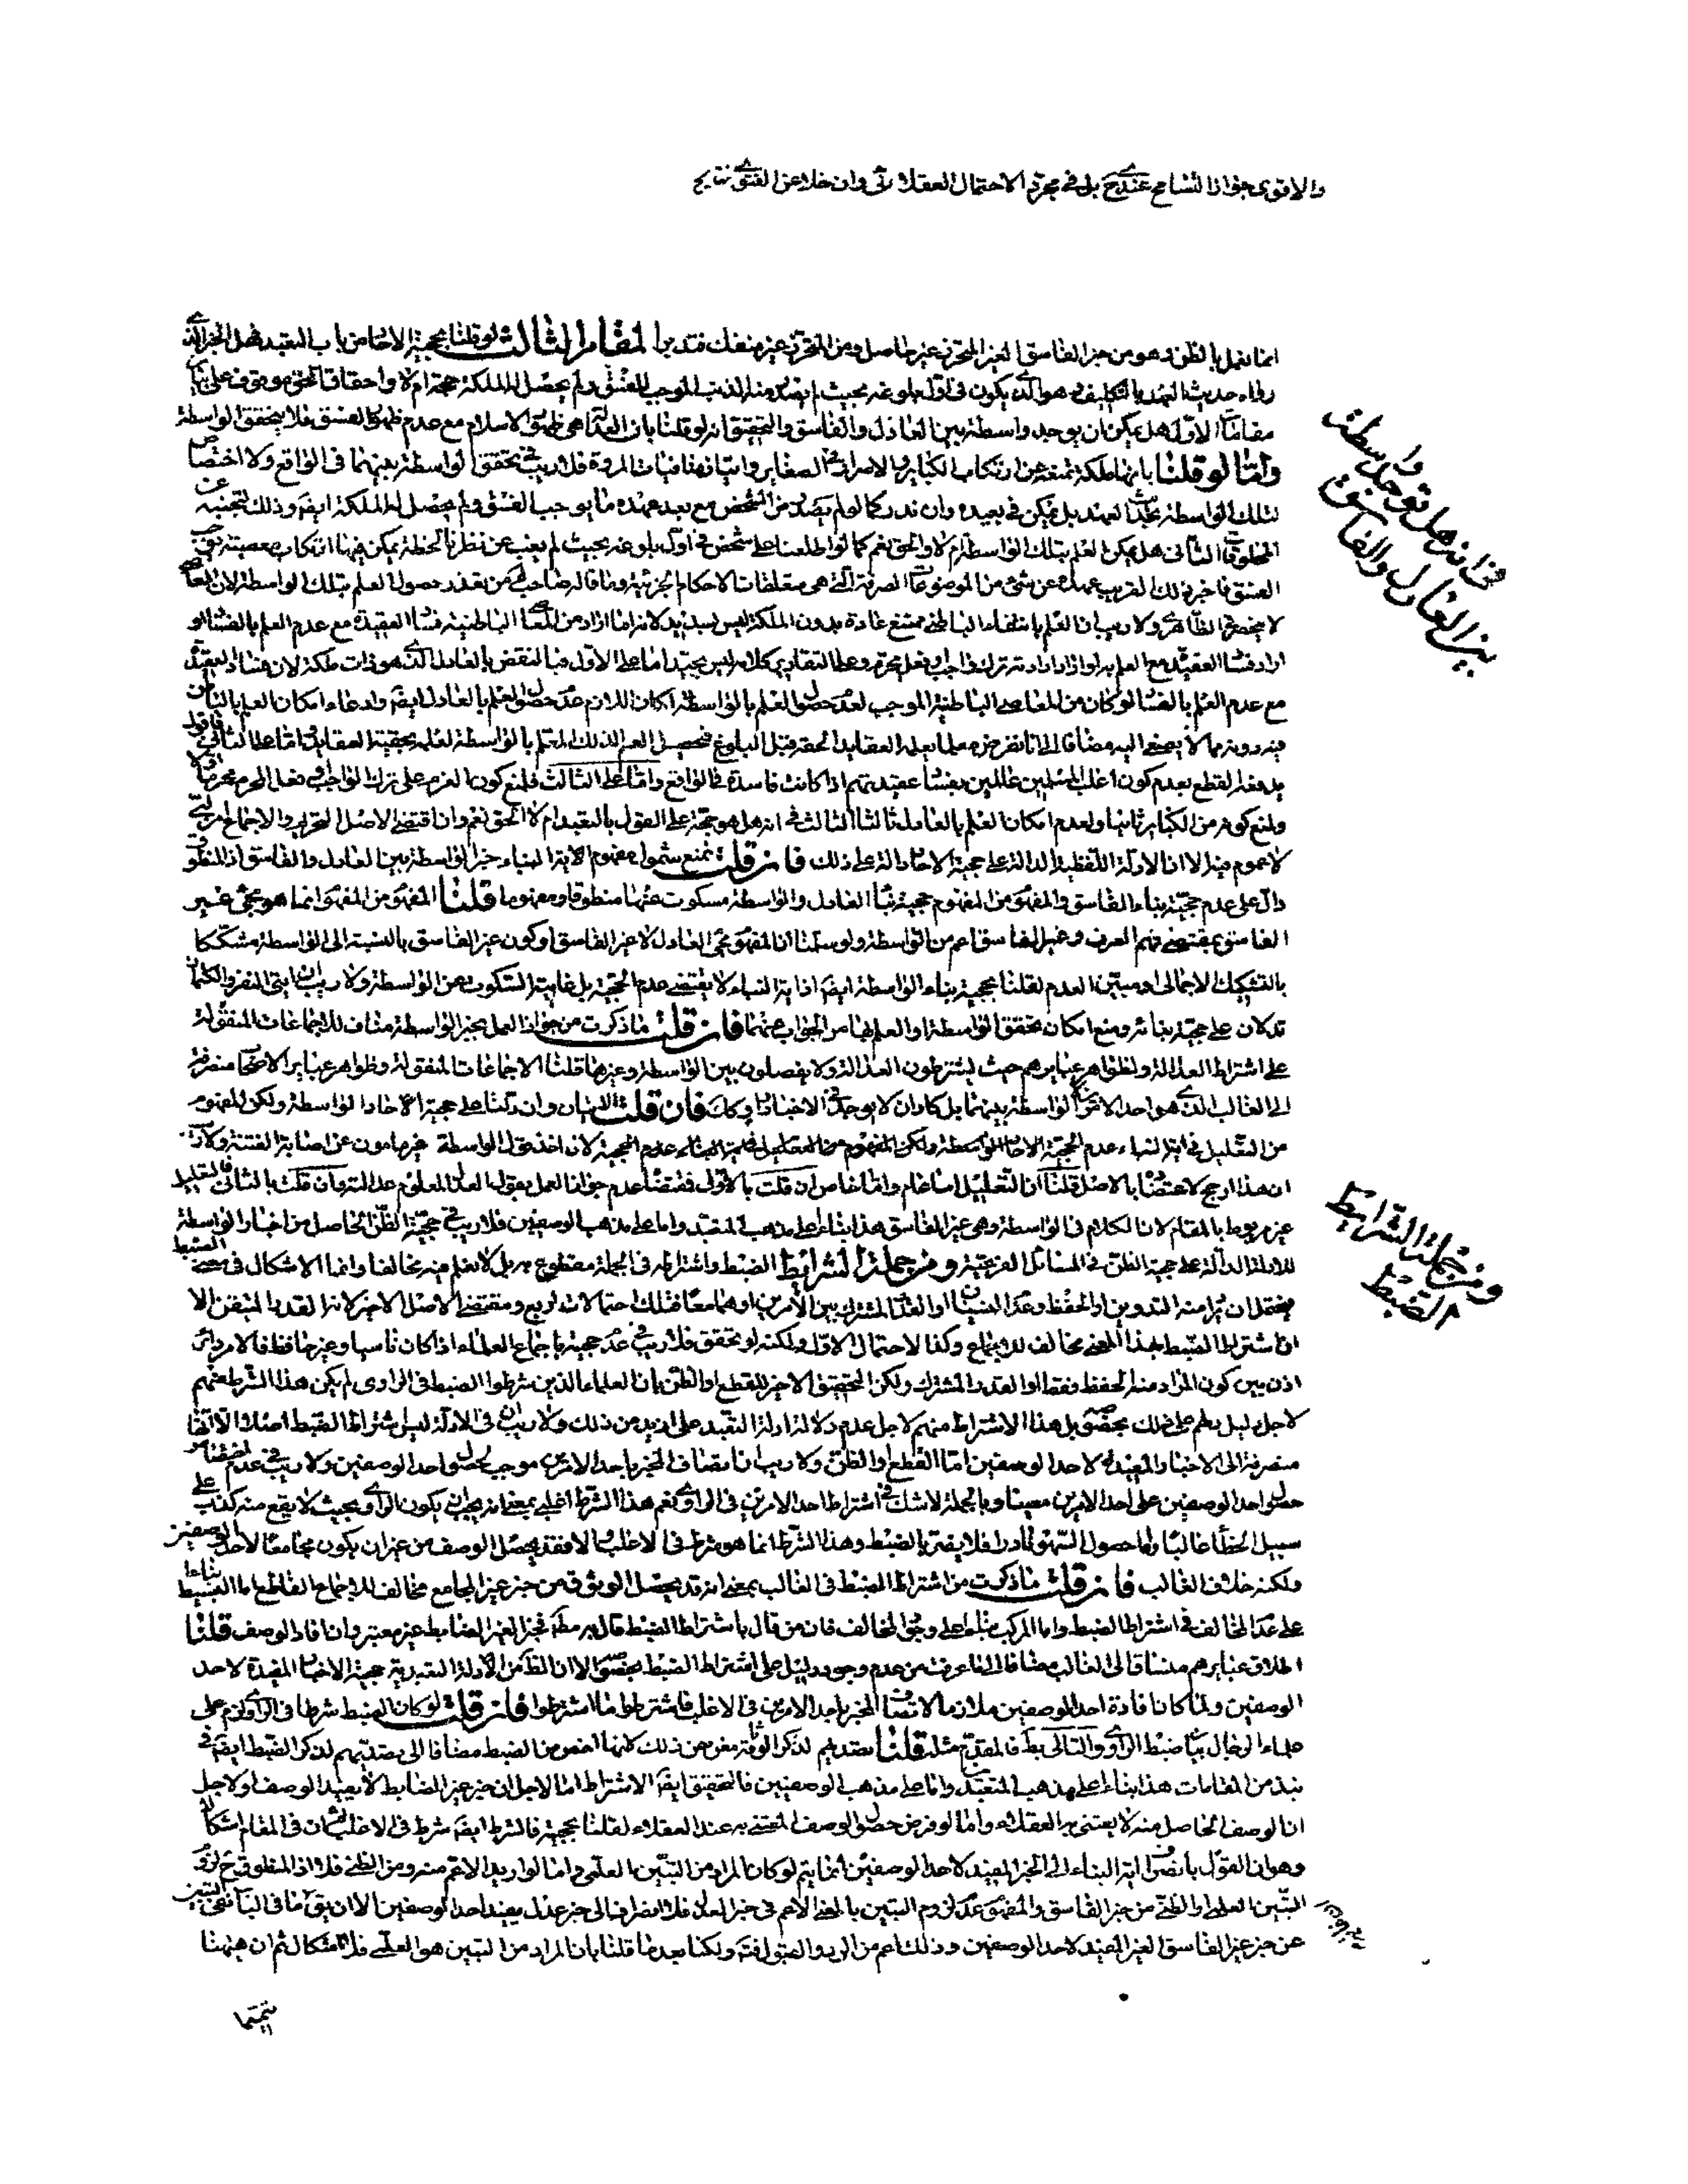 والاقوى جواز التسامح عندى ح بل في مجرد الاحتمال العقلائى وان خلا عن الفتوى نتايج
انما نعمل بالظن وهو من خبر الفاسق الغير المتحرز غير حاصل ومن المتحرز غير منفك فتدبر المقام الثالث لو قلنا بحجية الاخبار من باب التعبد فهل الخبر الذى
رواه حديث العهد بالتكليف وهو الذى يكون فى اول بلوغه بحيث لم يصدر منه الذنب الموجب للفسق ولم يحصل له الملكة حجة ام لا واحقاق الحق موقوف على بيان
مقامات الاول هل يمكن ان يوجد واسطة بين العادل والفاسق والتحقيق انه لو قلنا بان العدالة هى ظهور الاسلام مع عدم ظهور الفسق فلا يتحقق الواسطة
واما لو قلنا بانها ملكة تمنع عن ارتكاب الكباير والاصرار فى الصغاير واتيان منافيات المروة فلا ريب فى تحقق الواسطة بينهما فى الواقع ولا اختصاص
لتلك الواسطة بحديث العهد بل يمكن فى بعيده وان ندر كما لو لم يصدر من الشخص مع بعد عهده ما يوجب الفسق ولم يحصل له الملكة ايضا وذلك لتجنبه عن
المخلوقات الثانى هل يمكن العلم بتلك الواسطة ام لا والحق نعم كما لو اطلعنا على شخص فى اول بلوغه بحيث لم يغب عن نظرنا لحظة يمكن فيها ارتكاب معصية توجب
الفسق فاخبر ذلك القريب عهده عن شئ من الموضوعات الصرفة التى هى متعلقات الاحكام الجزئية وما قاله صاحب لم من تعذر حصول العلم بتلك الواسطة لان المعاصى
لا ينحصر فى الظاهرى ولا ريب ان العلم بانتفاء الباطنى ممتنع عادة بدون الملكة ليس بسديد لانه اما اراد من المعاصى الباطنية فساد العقيدة مع عدم العلم بالفساد او
اراد فساد العقيدة مع العلم به او اراد ارادته ترك واجب او فعل محرم وعلى التقادير كلامه ليس بجيد اما على الاول فبالنقض بالعادل الذى هو ذات ملكة لان فساد العقيدة
مع عدم العلم بالفساد لو كان من المعاصى الباطنية الموجب لعدم حصول العلم بالواسطة لكان اللازم عدم حصول العلم بالعادل ايضا وادعاء امكان العلم بالثانى من
فيه دونه مما لا يصغى اليه مضافا الى انا نفرضه معلما بعلمه العقايد الحقة قبل البلوغ فيحصل العلم لذلك المعلم بالواسطة لعلمه بحقية العقايد واما على الثانى فاولا
يدفعه القطع بعدم كون اغلب المسلمين عالمين بفساد عقيدتهم اذا كانت فاسدة فى الواقع واما على الثالث فلمنع كون العزم على ترك الواجب وفعل المحرم محرما اولا
ولمنع كونه من الكباير ثانيا ولعدم امكان العلم بالعادل ثالثا الثالث فى انه هل هو حجة على القول بالتعبد ام لا الحق نعم وان اقتضى الاصل التحريم والاجماع المركب
لا عموم فيه الا ان الادلة اللفظية الدالة على حجية الاخبار دالة على ذلك فان قلت نمنع شمول مفهوم الاية لنباء خبر الواسطة بين العادل والفاسق اذ المنطوق
دال على عدم حجية نباء الفاسق والمفهوم من المفهوم حجية نبأ العادل والواسطة مسكوت عنها منطوقا ومفهوما قلنا المفهوم من المفهوم انما هو مجئ غير
الفاسق بمقتضى فهم العرف وغير الفاسق اعم من الواسطة ولو سلمنا ان المفهوم مجئ العادل لا غير الفاسق او كون غير الفاسق بالنسبة الى الواسطة مشككا
بالتشكيك الاجمالى او مبين العدم لقلنا بحجية نباء الواسطة ايضا اذ اية النباء لا يقتضى عدم الحجية بل غايتها السكوت عن الواسطة ولا ريب ان ايتى النفر والكتمان
تدلان على حجية نبائه ومنع امكان تحقق الواسطة او العلم بها مر الجواب عنهما فان قلت ما ذكرت من جواز العمل بخبر الواسطة مناف للاجماعات المنقولة
على اشتراط العدالة ولظواهر عبايرهم حيث يشترطون العدالة ولا يفصلون بين الواسطة وغيرها قلنا الاجماعات المنقولة وظواهر عباير الاصحاب منصرفة
الى الغالب الذى هو احد الامرين الواسطة بينهما بل كاد ان لا يوجد فى الاخبار راو كك فان قلت الايتان وان دلتا على حجية الاخاد الواسطة ولكن المفهوم
من التعليل فى اية النباء عدم الحجية لان اخذ قول الواسطة غير مامون عن اصابة الفتنة ولا ريب
ان هذا ارجح لاعتضاده بالاصل قلنا ان التعليل اما عام واما خاص ان قلت بالاول فمقتضاه عدم جواز العمل بقول العادل المعلوم عدالته وان قلت بالثانى فالتعليل
غير مربوط بالمقام لان الكلام فى الواسطة وهى غير الفاسق هذا بناء على مذهب المتعبد واما على مذهب الوصفيين فلا ريب فى حجية الظن الحاصل من اخبار الواسطة
للادلة الدالة على حجية الظن فى المسائل الفرعية ومن جملة الشرائط الضبط واشتراطه فى الجملة مقطوع به بل لا نعلم فيه مخالفا وانما الاشكال فى معنى الضبط
فيحتمل ان يراد منه التدوين او الحفظ وعدم النسيان او القدر المشترك بين الامرين او هما معا فتلك احتمالات اربع ومقتضى الاصل الاخير لانه القدر المتيقن الا
ان اشتراط الضبط بهذا المعنى مخالف للاجماع وكذا الاحتمال الاول ولكنه لو تحقق فلا ريب فى عدم حجيته باجماع العلماء اذا كان ناسيا وغير حافظ فالامر دائر
اذن بين كون المراد منه الحفظ فقط او القدر المشترك ولكن التحقيق الاخير للقطع او الظن بان العلماء الذين شرطوا الضبط فى الراوى لم يكن هذا الشرط منهم
لاجل دليل دلهم على ذلك بخصوصه بل هذا الاشتراط منهم لاجل عدم دلالة ادلة التعبد على ازيد من ذلك ولا ريب ان فى الادلة ليس اشتراط الضبط اصلا الا انها
منصرفة الى الاخبار المفيدة لاحد الوصفين اما القطع او الظن ولا ريب ان اتصاف المخبر باحد الامرين موجب لحصول احد الوصفين ولا ريب فى عدم توقف
حصول احد الوصفين على احد الامرين معينا وبالجملة لا شك فى اشتراط احد الامرين فى الراوى نعم هذا الشرط اغلبى بمعنى انه يجب ان يكون الراوى بحيث لا يقع منه كذب على
سبيل الخطأ غالبا واما حصول السهو نادرا فلا يضر بالضبط وهذا الشرط انما هو شرط فى الاغلب والا فقد يحصل الوصف من غير ان يكون مجامعا لاحد الوصفين
ولكنه خلاف الغالب فان قلت ما ذكرت من اشتراط الضبط فى الغالب بمعنى انه قد يحصل الوثوق من خبر غير الجامع مخالف للاجماع القاطع اما البسيط بناء
على عدم المخالف فى اشتراط الضبط واما المركب فبناء على وجود المخالف فان من قال باشتراط الضبط قال به مطلقا فخبر الغير الضابط غير معتبر وان افاد الوصف قلنا
اطلاق عبايرهم منساق الى الغالب مضافا الى ما عرفت من عدم وجود دليل على اشتراط الضبط بخصوصه الا ان الظاهر من الادلة التعبدية حجية الاخبار المفيدة لاحد
الوصفين ولما كان افادة احد الوصفين ملازما لاتصاف المخبر باحد الامرين فى الاغلب فاشترطوا ما اشترطوا فان قلت لو كان الضبط شرطا فى الراوى لزم على
علماء الرجال بيان ضبط الراوى والتالى بط فالمقدم مثله قلنا تصديهم لذكر الوثاقة مغن عن ذلك لانها اخص من الضبط مضافا الى تصديهم لذكر الضبط ايضا فى
نبذ من المقامات هذا بناء على مذهب المتعبد واما على مذهب الوصفيين فالتحقيق ايضا الاشتراط اما لاجل ان خبر غير الضابط لا يفيد الوصف او لاجل
ان الوصف الحاصل منه لا يعتنى به العقلاء واما لو فرض حصول الوصف المعتنى به عند العقلاء لقلنا بحجيته فالشرط ايضا شرط فى الاغلب ثم ان فى المقام اشكالا
وهو ان القول بانصراف اية النباء الى الخبر المفيد لاحد الوصفين انما يتم لو كان المراد من التبين العلمى واما لو اريد الاعم منه ومن الظنى فلا اذ المنطوق ح لزوم
التبين العلمى او الظنى من خبر الفاسق والمفهوم عدم لزوم التبين بالمعنى الاعم فى خبر العدل فلا انصراف الى خبر عدل يفيد احد الوصفين الا ان يق
عن خبر غير الفاسق الغير المفيد لاحد الوصفين وذلك اعم من الرد والقبول فتم ولكنا بعد ما قلنا بان المراد من التبين هو العلمى فلا اشكال ثم ان هيهنا
فى انه هل توجد واسطة
بين العادل والفاسق
ومن جملة الشرايط
الضبط